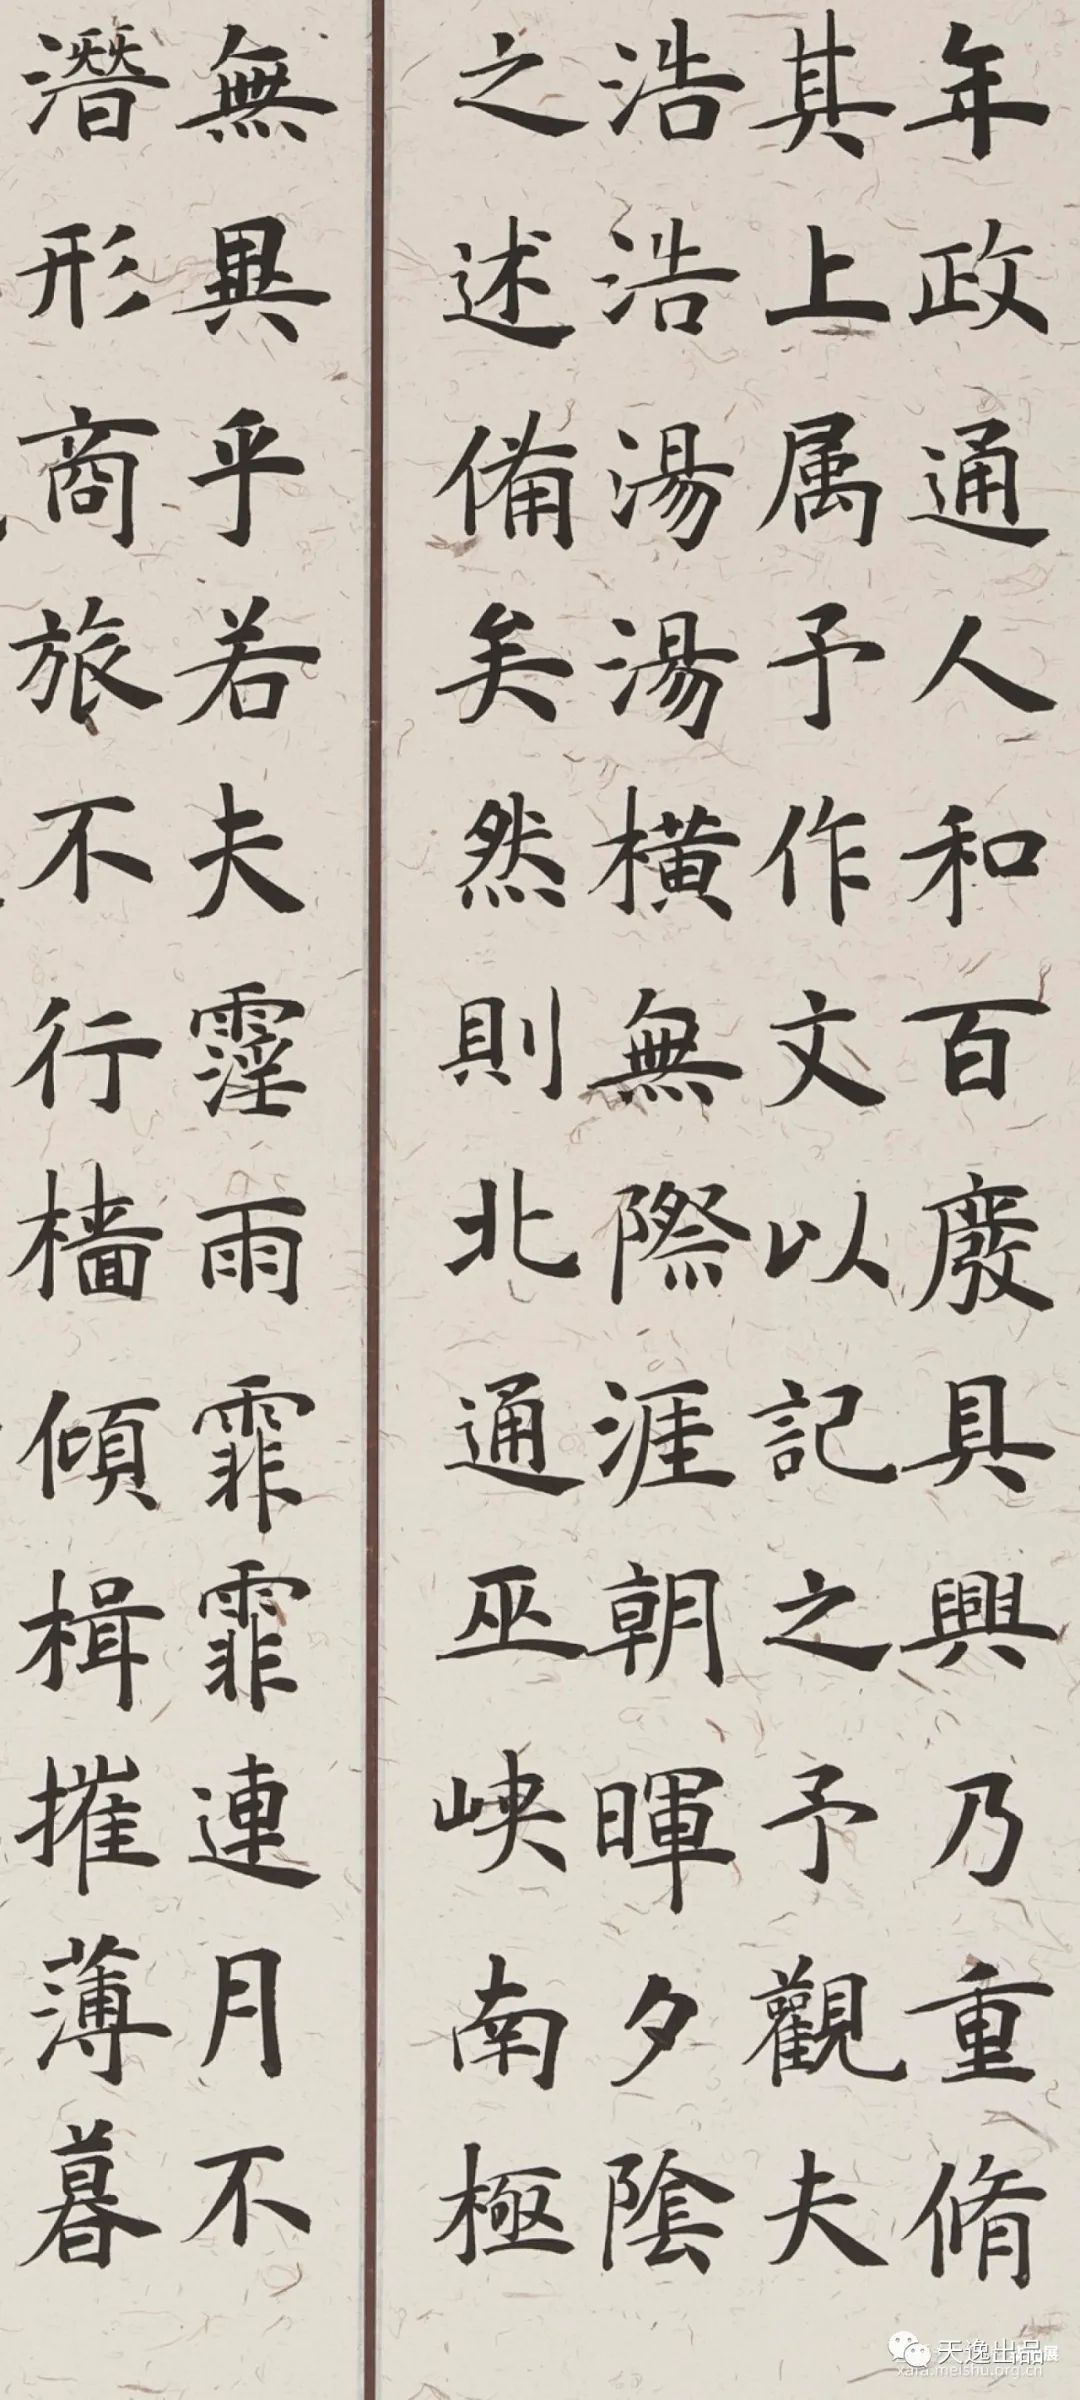 年政通人和百廢具興乃重脩
其上属予作文以記之予觀夫
浩浩湯湯橫無際涯朝暉夕陰
之述備矣然則北通巫峽南極
無異乎若夫霪雨霏霏連月不
潛形商旅不行檣傾楫摧薄暮
天逸出品
展
xafa.meishu.org.cn